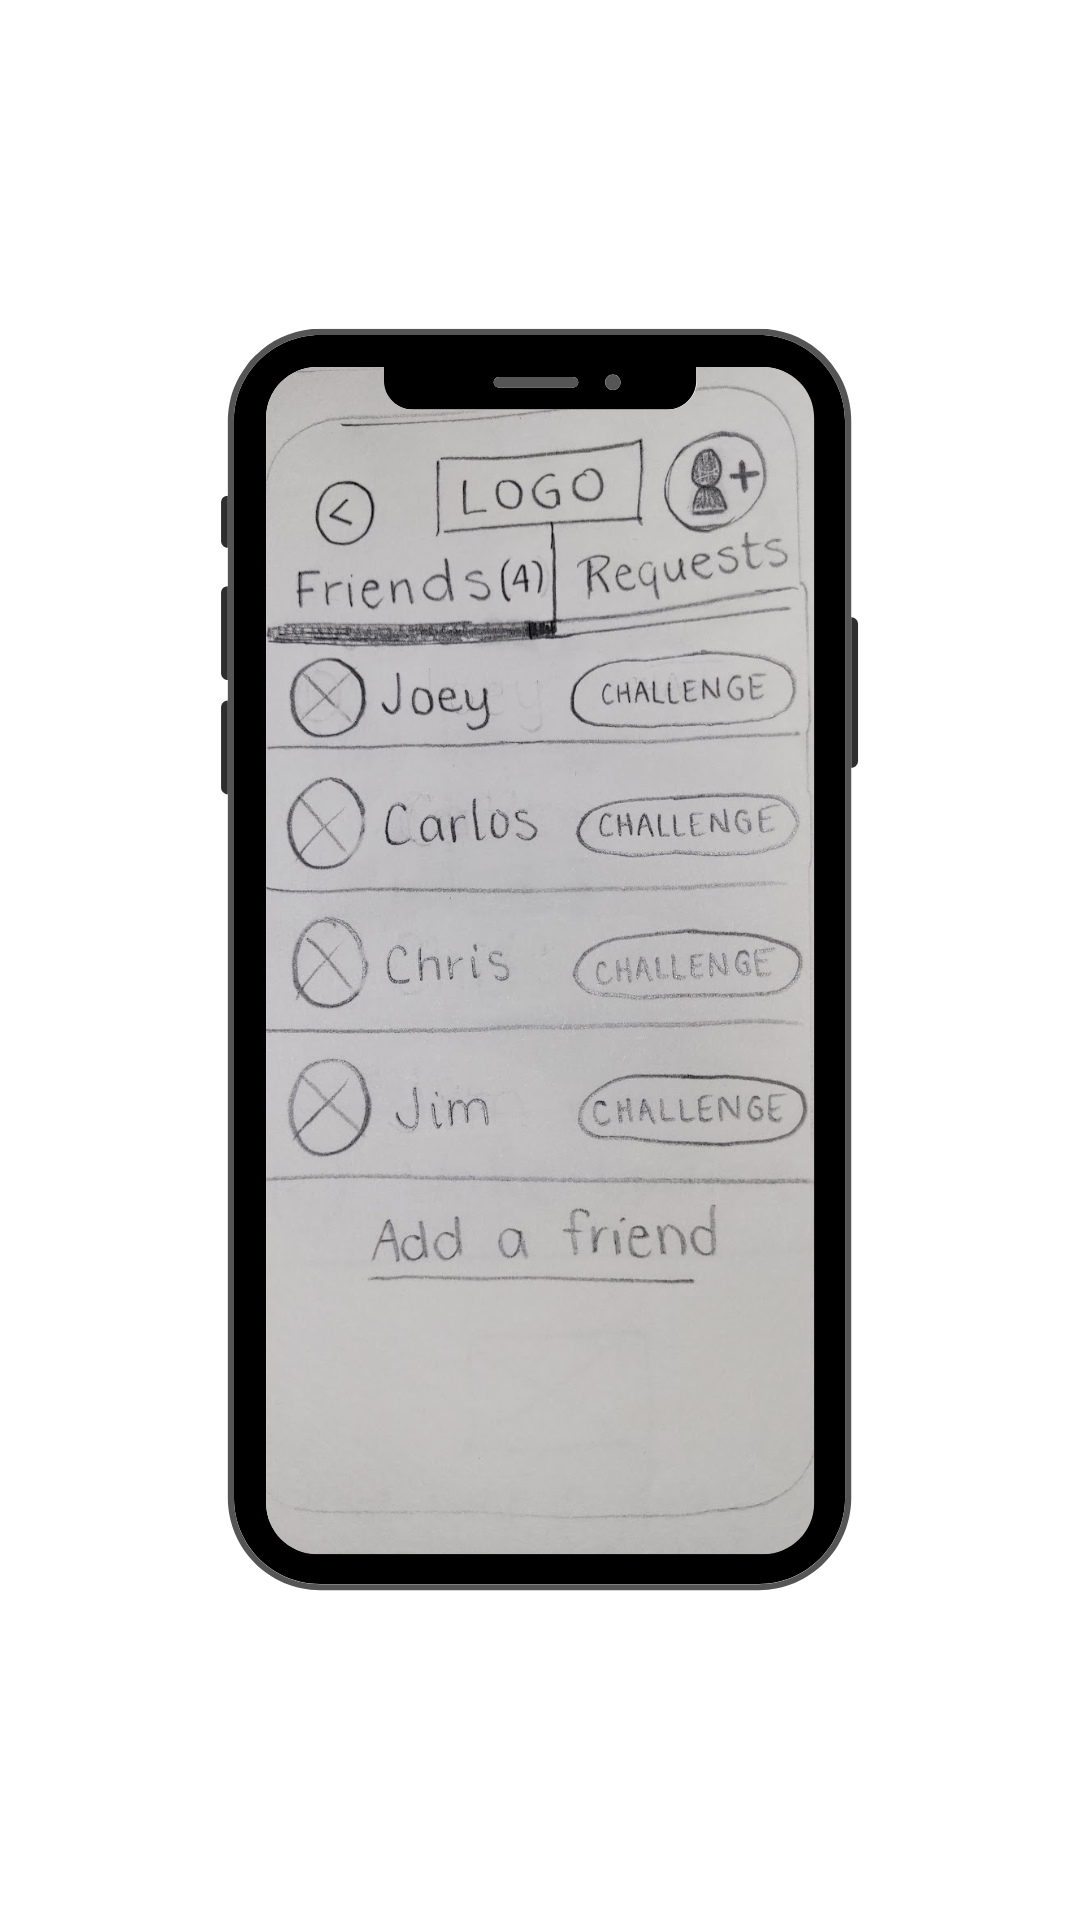 <
LOGO
+
Friends (4)
Requests
Joey
CHALLENGE
Carlos
CHALLENGE
Chris
CHALLENGE
Jim
CHALLENGE
Add a friend